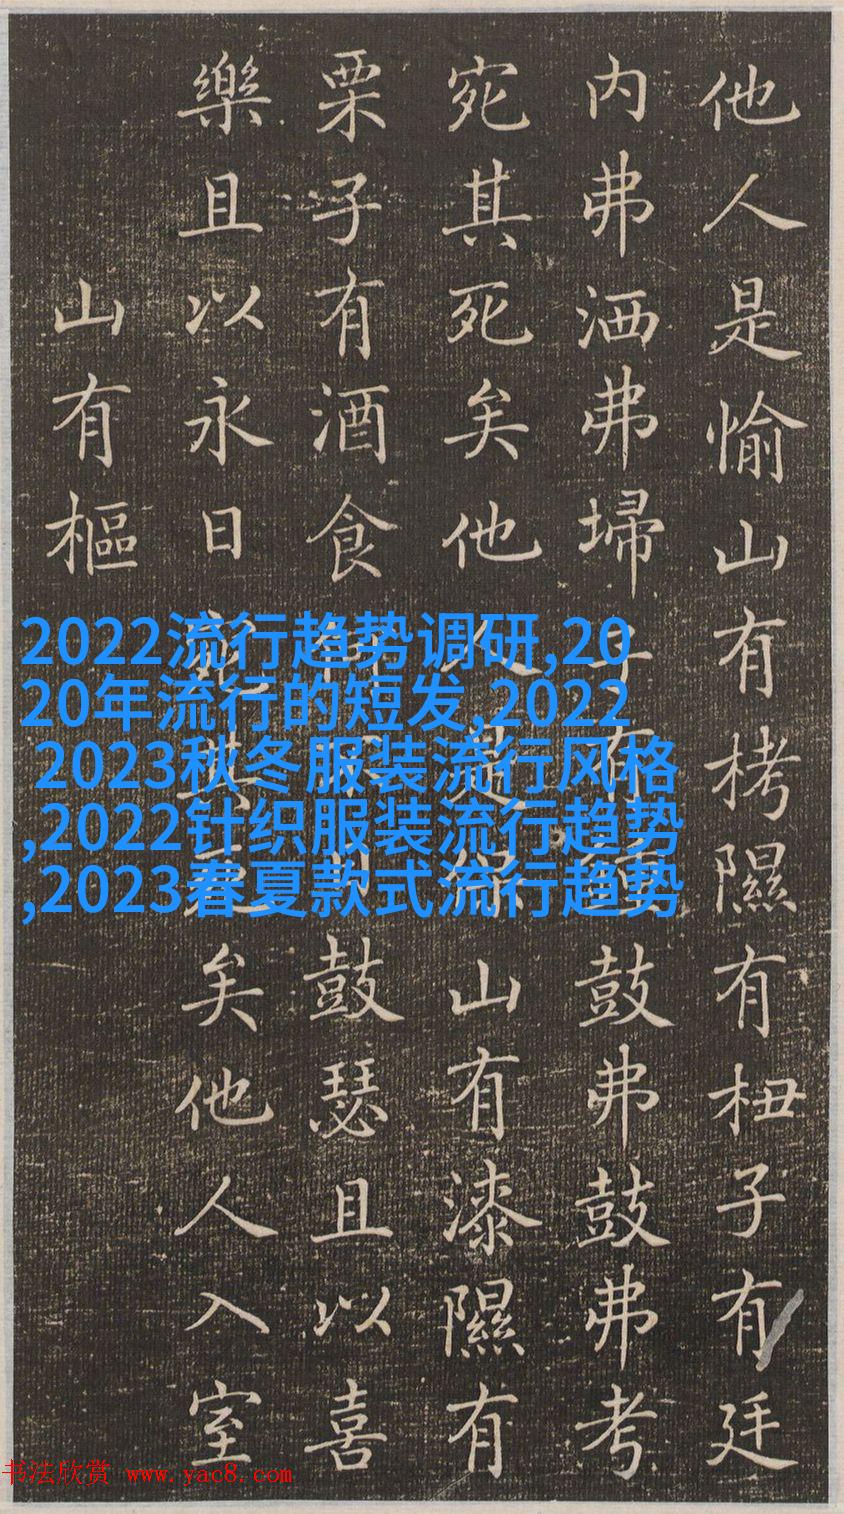 他人是愉山有栲隰有杻子有廷
内弗洒弗埽子有鼓弗鼓弗考
宛其死矣他人是山有漆隰有
栗子有酒食何不日鼓瑟且以喜
樂且以永日宛其死矣他人入室
山有樞
2022流行趋势调研,20
20年流行的短发,2022
2023秋冬服装流行风格
,2022针织服装流行趋势
,2023春夏款式流行趋势
书法欣赏 www.yac8.com